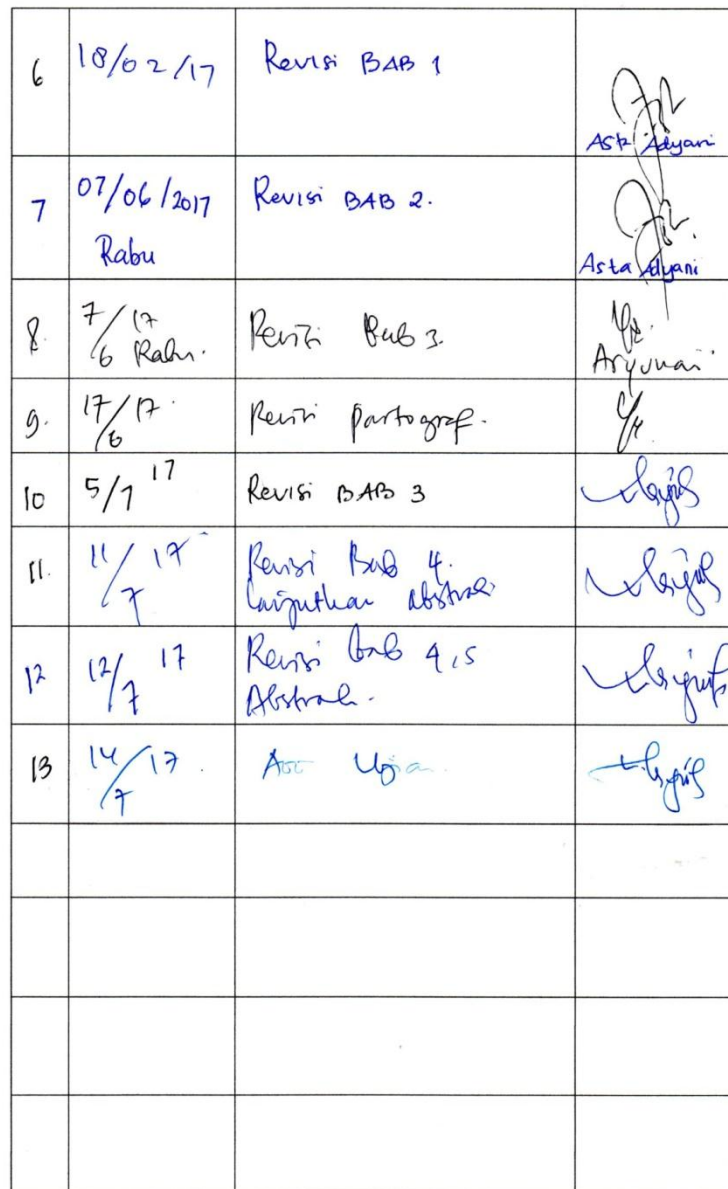 6 18/02/17 Revisi BAB 1
Asta Adyani
7 07/06/2017 Revisi BAB 2.
Rabu
Asta Adyani
8. 7/6 17 Rabu. Revisi Bab 3.
9. 17/6 17. Revisi partograf.
10 5/7 17 Revisi BAB 3
11. 11/7 17 Revisi Bab 4.
lanjutkan abstrak
12 12/7 17 Revisi bab 4,5
Abstrak.
13 14/7 17. Acc Ujian